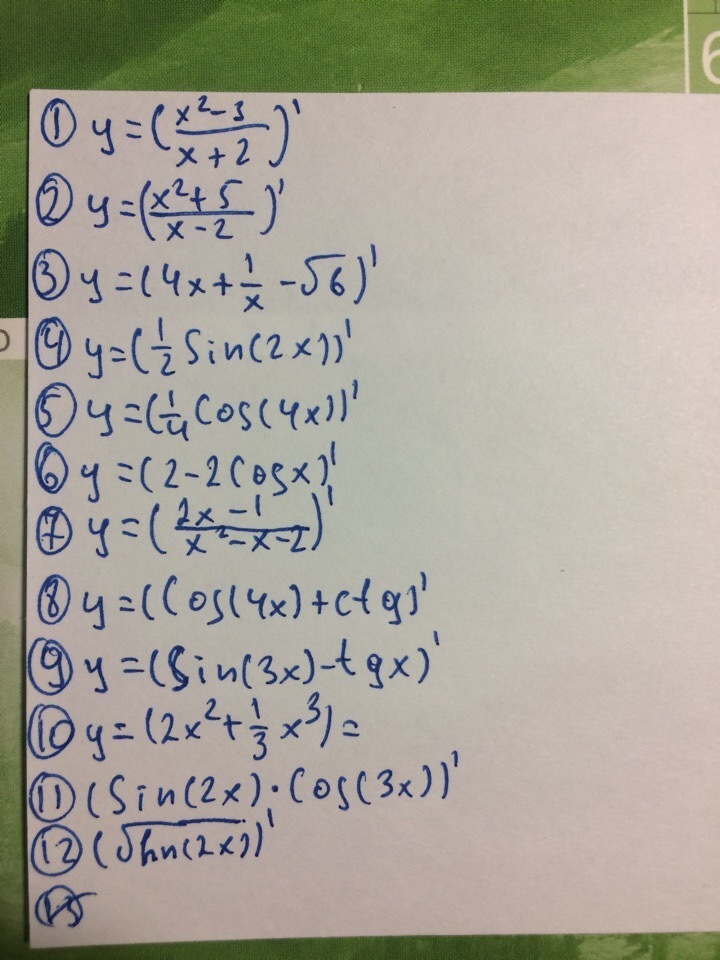 6
① y=(\frac{x²-3}{x+2})'
② y=(\frac{x²+5}{x-2})'
③ y=(4x+\frac{1}{x}-√6)'
④ y=(\frac{1}{2}Sin(2x))'
⑤ y=(\frac{1}{4}Cos(4x))'
⑥ y=(2-2Cosx)'
⑦ y=(\frac{2x-1}{x²-x-2})'
⑧ y=(Cos(4x)+ctg)'
⑨ y=(Sin(3x)-tgx)'
⑩ y=(2x²+\frac{1}{3}x³)=
⑪ (Sin(2x)·Cos(3x))'
⑫ (√hn(2x))'